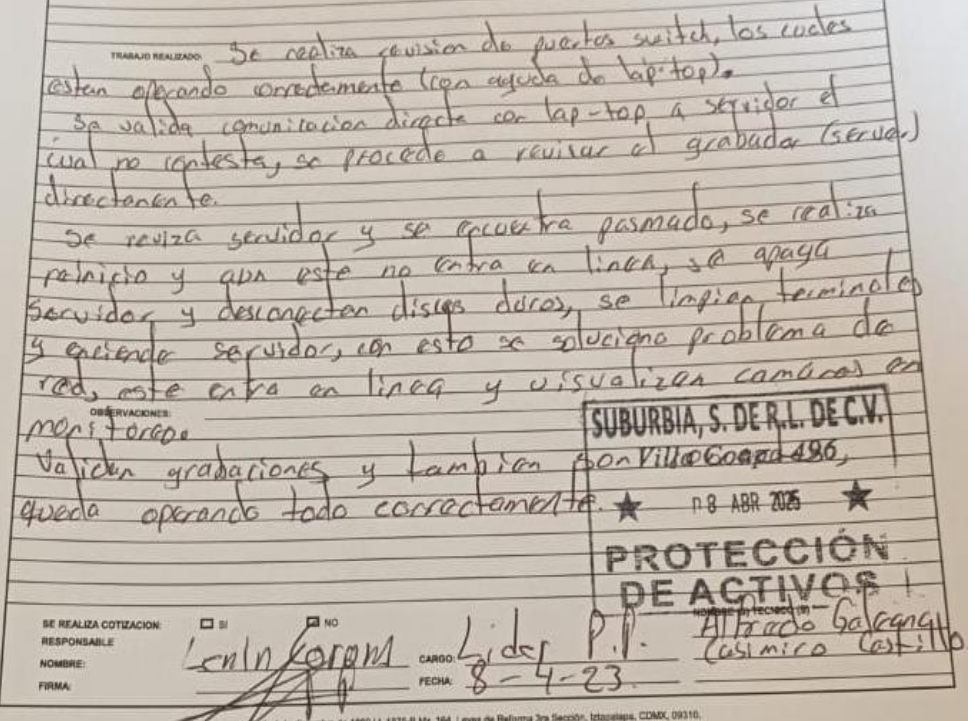 TRABAJO REALIZADO: Se realiza revision de puertos switch, los cuales
estan operando correctamente (con ayuda de lap-top).
Se valida comunicacion directa con lap-top a servidor el
cual no contesta, se procede a revisar el grabador (server)
directamente.
Se reviza servidor y se encuentra pasmado, se realiza
reinicio y aun este no entra en linea, se apaga
servidor y desconectan discos duros, se limpian terminales
y enciende servidor, con esto se soluciona problema de
red, este entra en linea y visualizan camaras en
OBSERVACIONES:
monitoreo.
Validan grabaciones y tambien
queda operando todo correctamente.
SUBURBIA, S. DE R.L. DE C.V.
486,
08 ABR 2025
PROTECCIÓN
DE ACTIVOS
SE REALIZA COTIZACION: SI NO
RESPONSABLE
NOMBRE: Lenin
CARGO: Lider P.P.
Alfredo
Casimiro Castillo
FIRMA:
FECHA: 8-4-23
de Reforma 3ra Sección, Iztapalapa, CDMX, 09310.